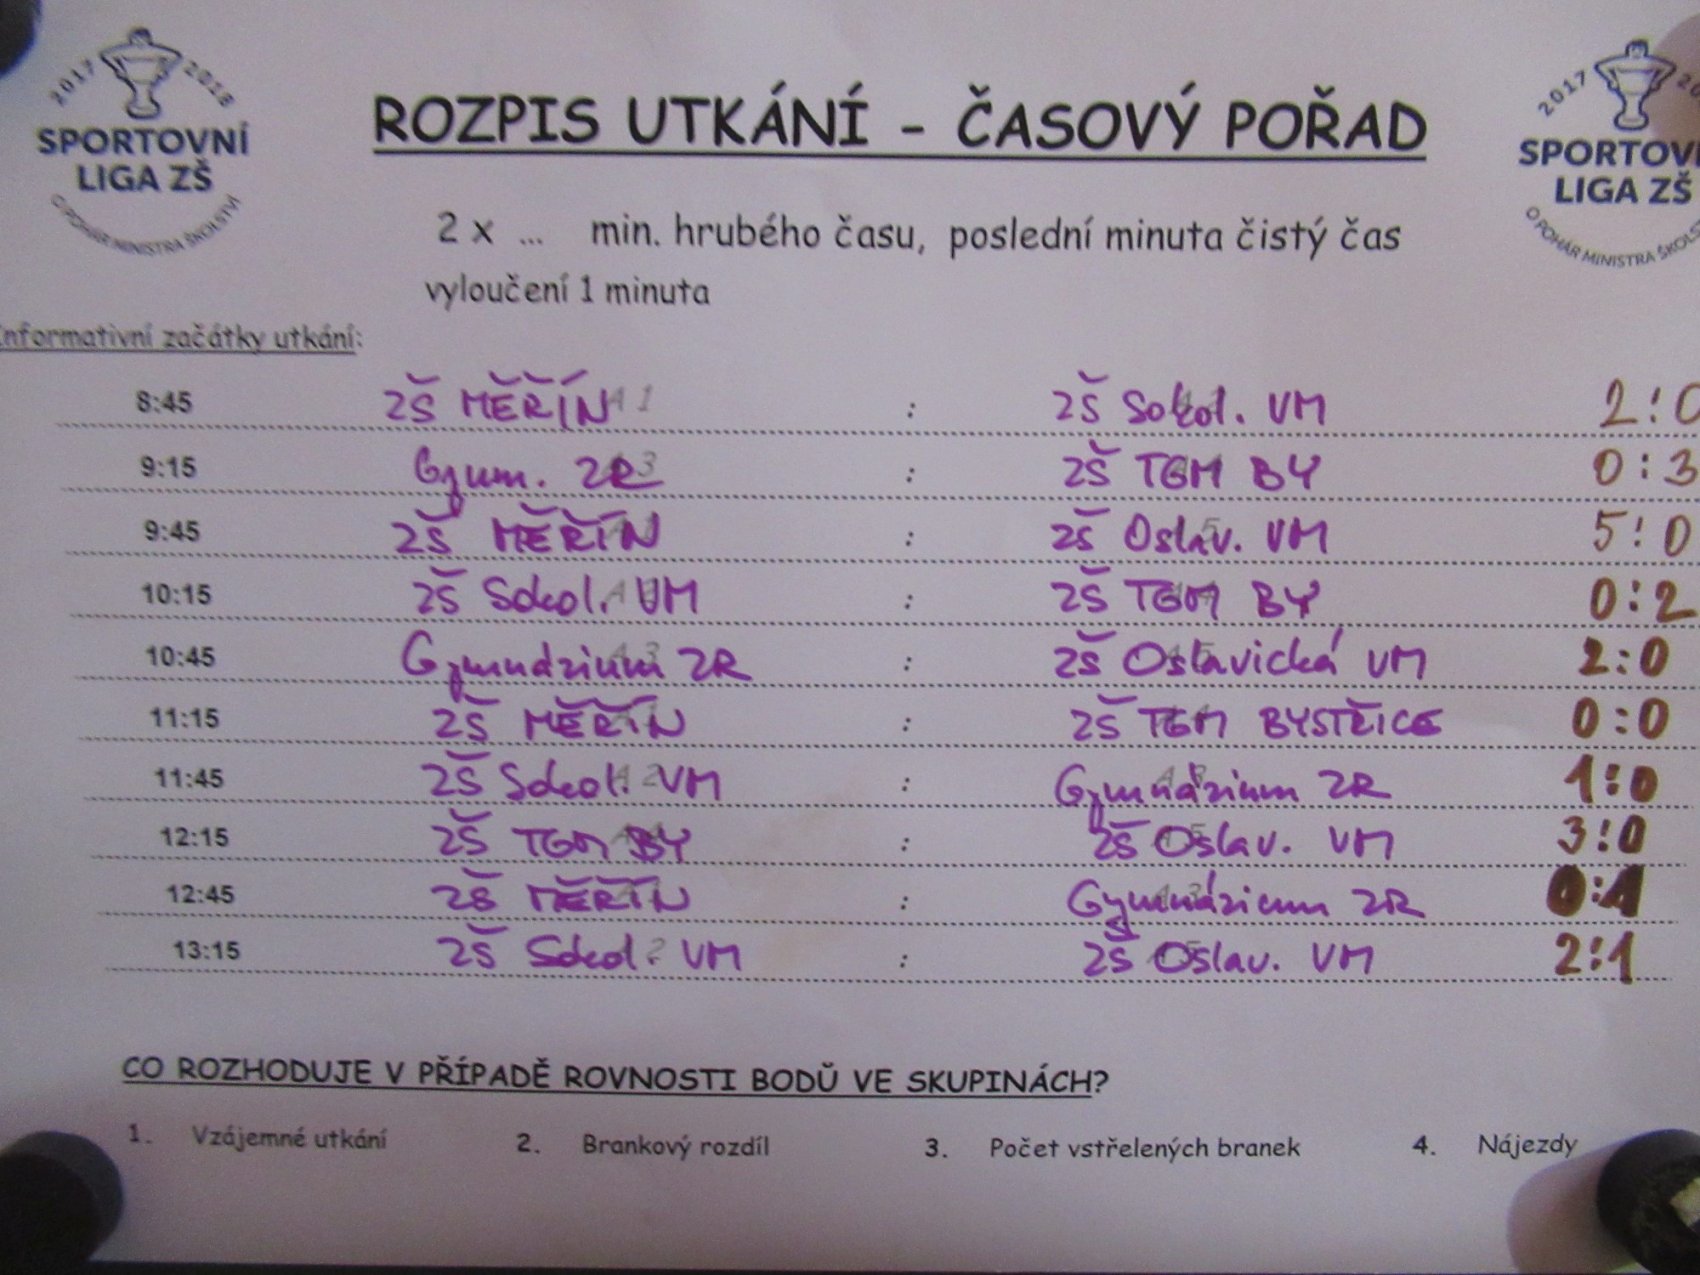 2017 2018
SPORTOVNÍ
LIGA ZŠ
O POHÁR MINISTRA ŠKOLSTVÍ
2017 20
SPORTOV
LIGA ZŠ
O POHÁR MINISTRA ŠKOLST
ROZPIS UTKÁNÍ - ČASOVÝ POŘAD
2 x ... min. hrubého času, poslední minuta čistý čas
vyloučení 1 minuta
Informativní začátky utkání:
8:45 ZŠ MĚŘÍN A1 : ZŠ Sokol. VM 2:0
9:15 Gym. ZR 3 : ZŠ TGM BY 0:3
9:45 ZŠ MĚŘÍN : ZŠ Oslav. VM 5:0
10:15 ZŠ Sokol. VM : ZŠ TGM BY 0:2
10:45 Gymnázium ZR : ZŠ Oslavická VM 2:0
11:15 ZŠ MĚŘÍN : ZŠ TGM BYSTŘICE 0:0
11:45 ZŠ Sokol. 2 VM : Gymnázium ZR 1:0
12:15 ZŠ TGM BY : ZŠ Oslav. VM 3:0
12:45 ZŠ MĚŘÍN : Gymnázium ZR 0:1
13:15 ZŠ Sokol. 2 VM : ZŠ Oslav. VM 2:1
CO ROZHODUJE V PŘÍPADĚ ROVNOSTI BODŮ VE SKUPINÁCH?
1. Vzájemné utkání 2. Brankový rozdíl 3. Počet vstřelených branek 4. Nájezdy